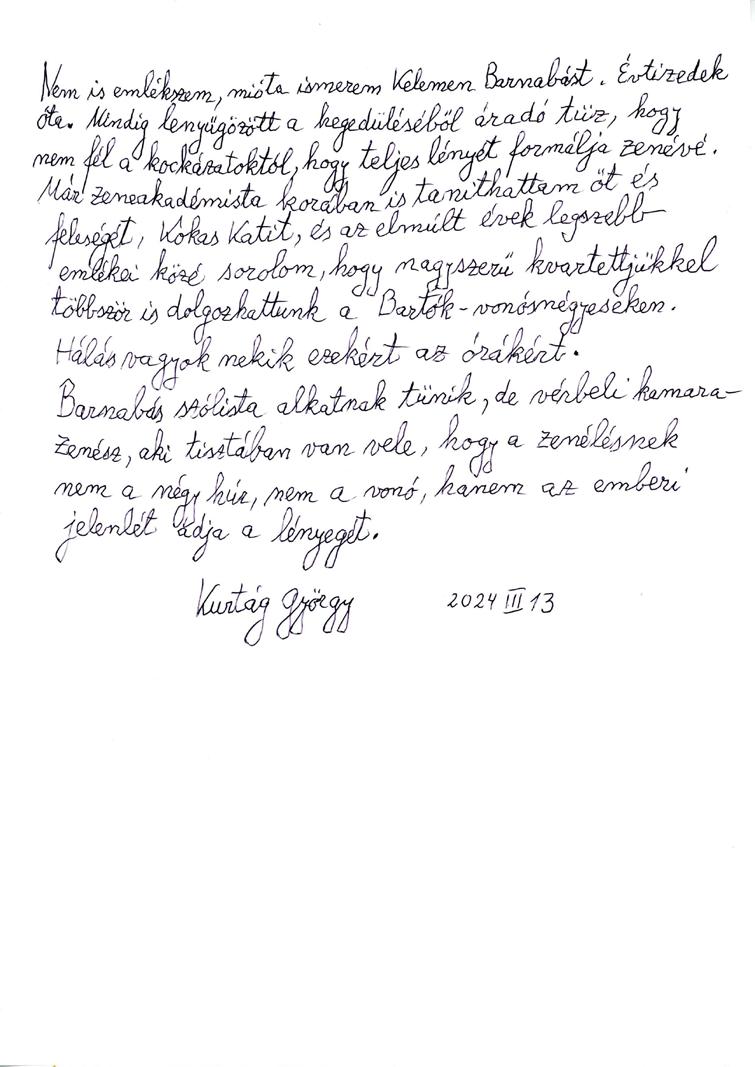 Nem is emlékszem, mióta ismerem Kelemen Barnabást. Évtizedek
óta. Mindig lenyűgözött a hegedüléséből áradó tűz, hogy
nem fél a kockázatoktól, hogy teljes lényét formálja zenévé.
Már zeneakadémista korában is taníthattam őt és
feleségét, Kokas Katit, és az elmúlt évek legszebb
emlékei közé sorolom, hogy nagyszerű kvartettjükkel
többször is dolgozhattunk a Bartók-vonósnégyeseken.
Hálás vagyok nekik ezekért az órákért.
Barnabás szólista alkatnak tűnik, de vérbeli kamara-
zenész, aki tisztában van vele, hogy a zenélésnek
nem a négy húr, nem a vonó, hanem az emberi
jelenlét adja a lényegét.
Kurtág György 2024 III 13